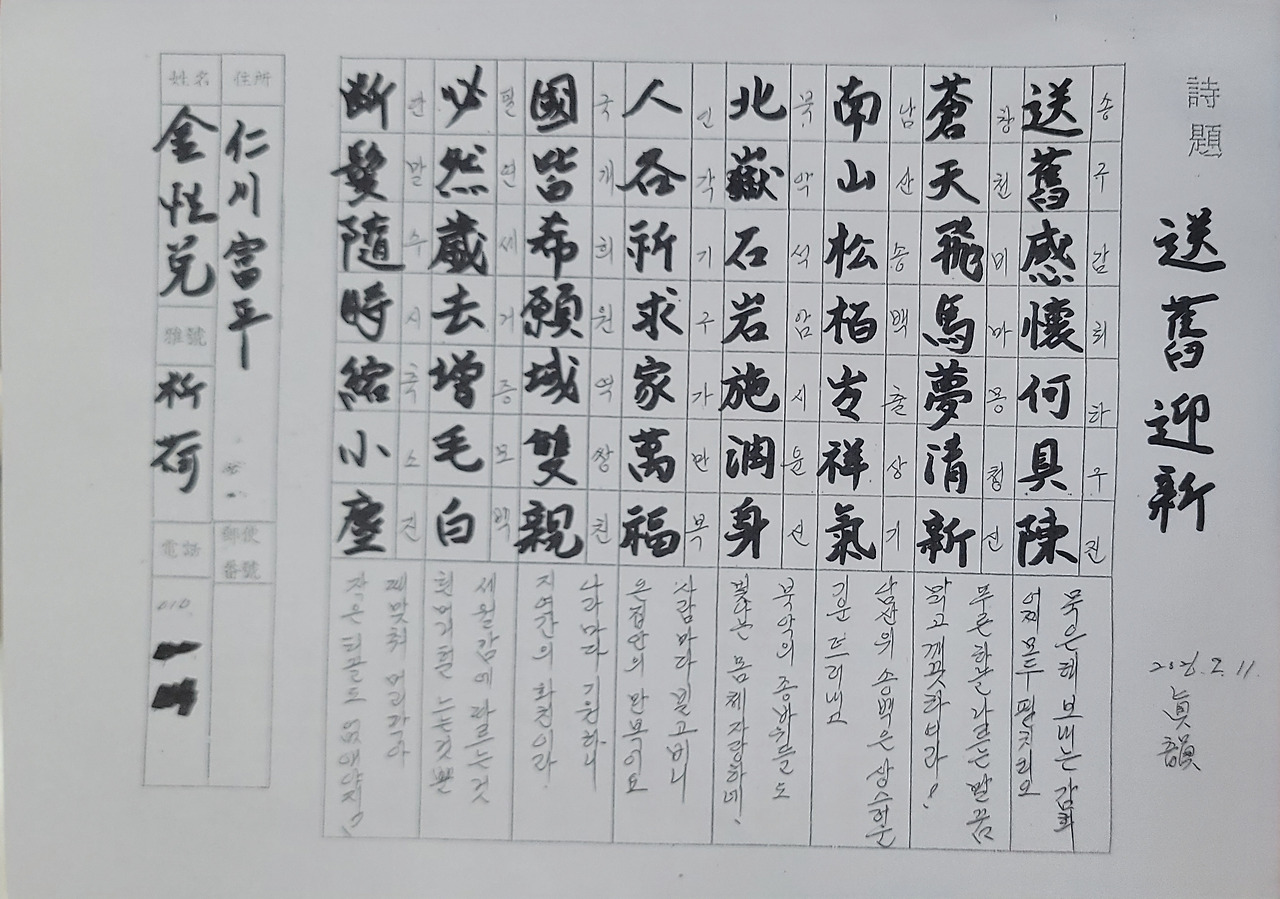 詩題 送舊迎新
2026.2.11.
眞韻
送舊感懷何具陳
송구감회하구진
묵은해 보내는 감회
어찌 모두 펼치리오
蒼天飛馬夢清新
창천비마몽청신
푸른하늘 나르는 말꿈
맑고 깨끗하여라!
南山松栢출祥氣
남산송백출상기
남산의 송백은 상스러운
기운 드러내고
北嶽石岩施潤身
북악석암시윤신
북악의 종바위들도
빛나는 몸체 자랑하네!
人各祈求家萬福
인각기구가만복
사람마다 빌고비니
은 집안의 만복이요
國皆希願域雙親
국개희원역쌍친
나라마다 기원하니
지역간의 화친이라
必然歲去增毛白
필연세거증모백
세월감의 따르는것
흰머리를 느는것
斷髮隨時縮小塵
단발수시축소진
때맞춰 머리깎아
작은 티끌도 없애야지!
住所 仁川富平
郵便番號
姓名 金性兌
雅號 析荷
電話 010